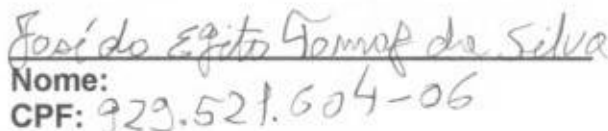 José do Egito Gomes da Silva
Nome:
CPF: 929.521.604-06